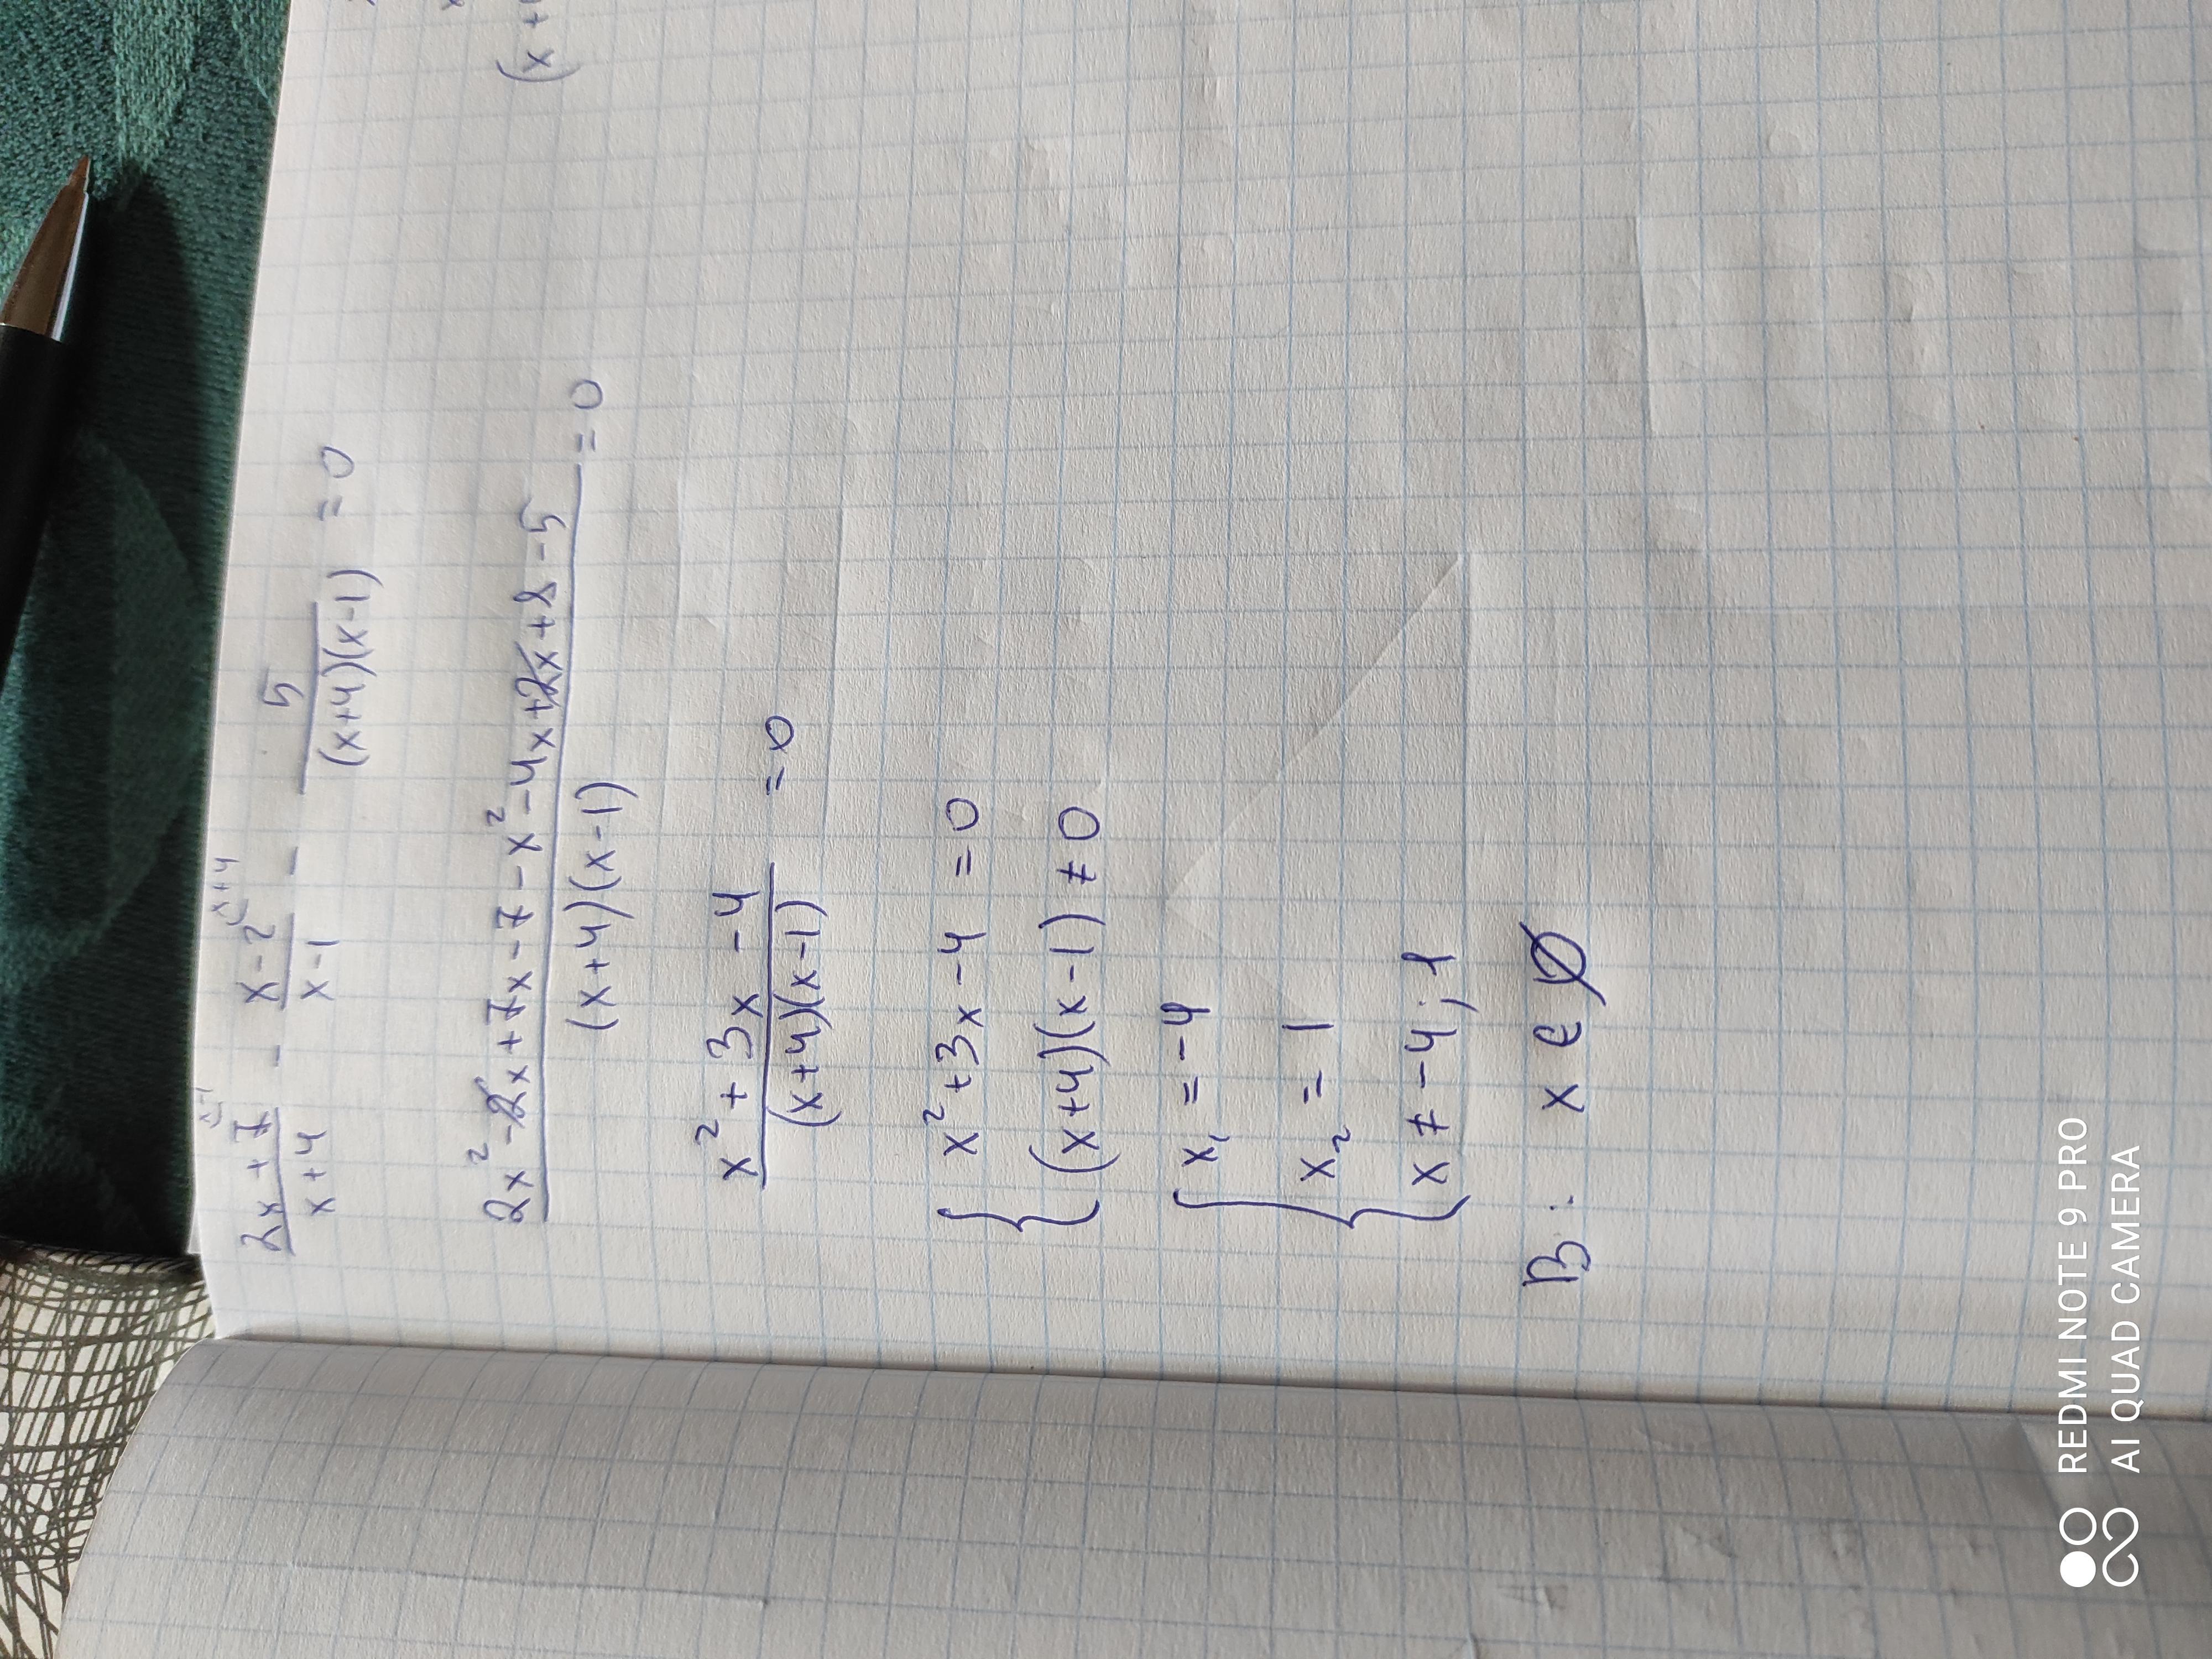 (2x+7)/(x+4) ^{x-1} - (x-2)/(x-1) ^{x+4} - 5/((x+4)(x-1)) = 0
(2x² -2x+7x-7-x²-4x+2x+8-5)/((x+4)(x-1)) = 0
(x²+3x-4)/((x+4)(x-1)) = 0
{ x²+3x-4 = 0
(x+4)(x-1) ≠ 0
{ x₁ = -4
x₂ = 1
x ≠ -4; 1
В: x ∈ ∅
(x+
REDMI NOTE 9 PRO
AI QUAD CAMERA